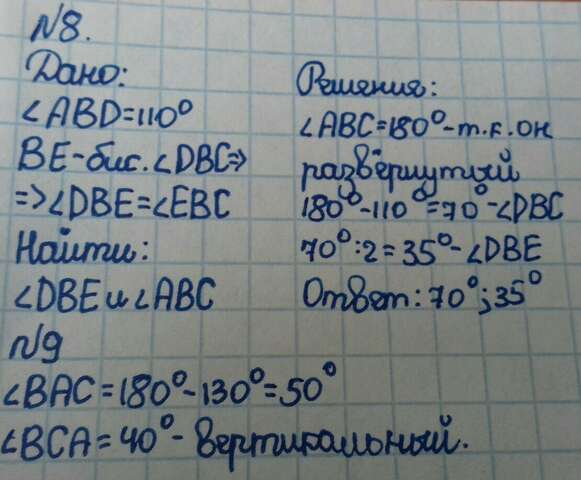 №8.
Дано:
∠ABD=110°
BE-бис.∠DBC⇒
⇒∠DBE=∠EBC
Найти:
∠DBE и ∠ABC
Решения:
∠ABC=180°-т.к.он
развёрнутый
180°-110°=70°-∠DBC
70°:2=35°-∠DBE
Ответ:70°;35°
№9
∠BAC=180°-130°=50°
∠BCA=40°-вертикальный.